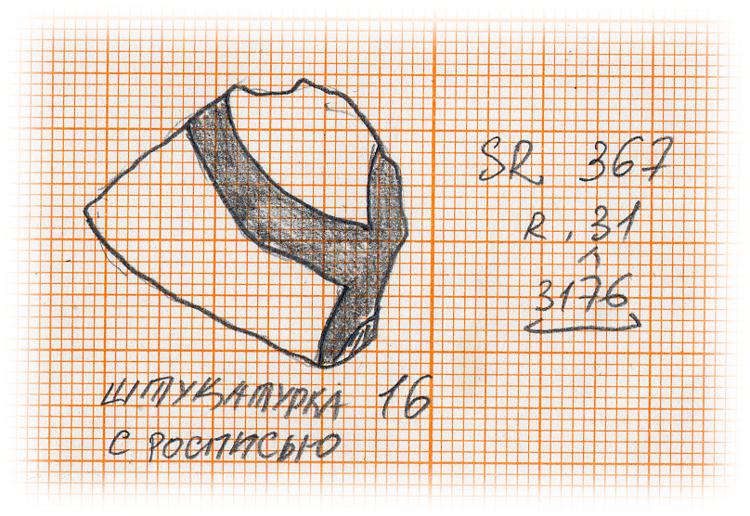 SR 367
R. 31
3176
ШТУКАТУРКА 16
С РОСПИСЬЮ